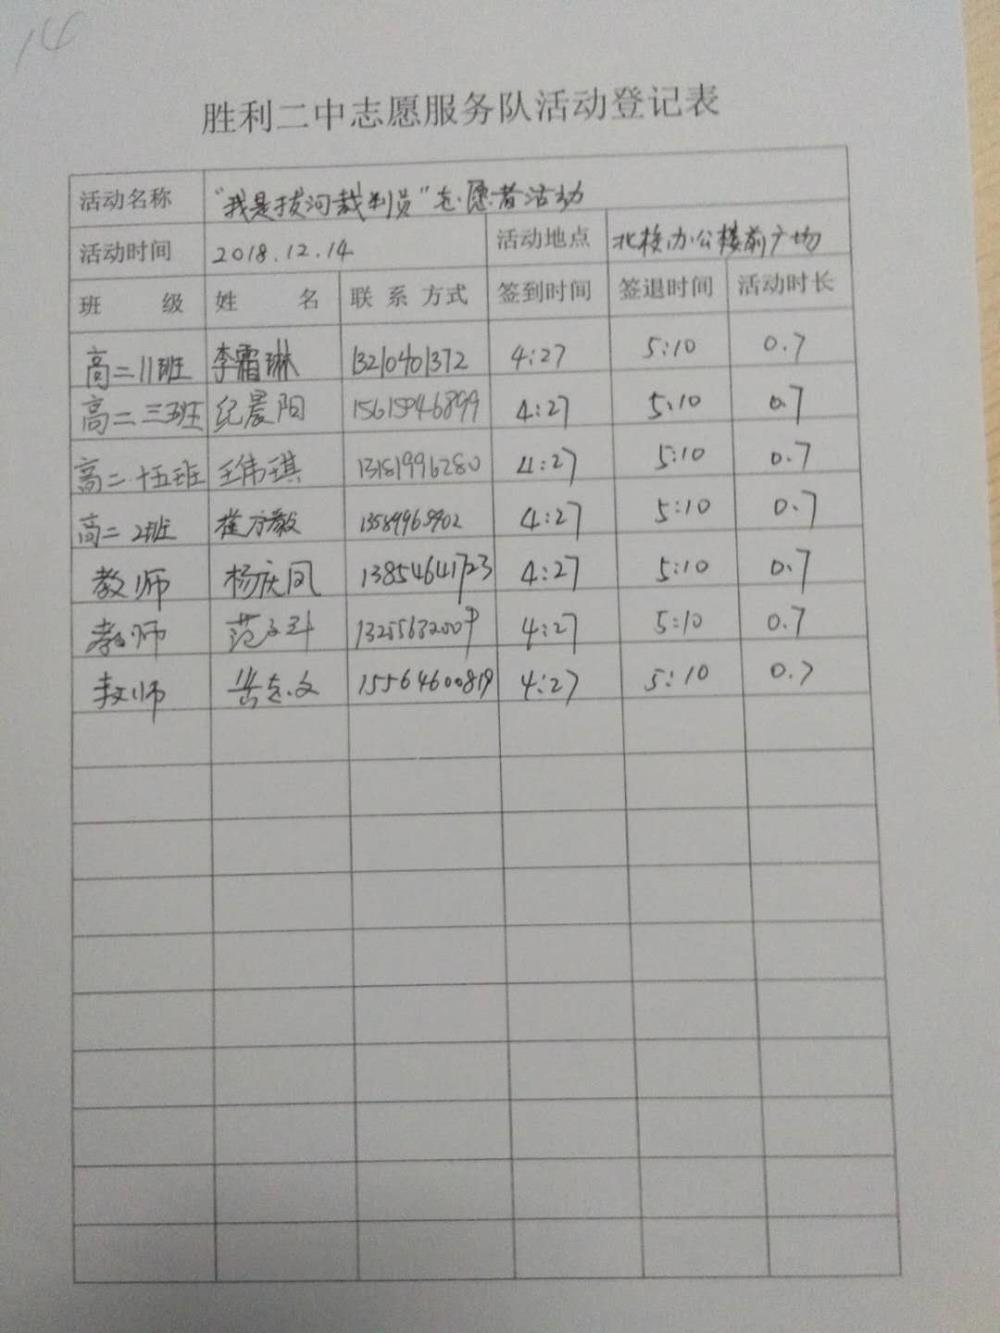 14
胜利二中志愿服务队活动登记表
活动名称 “我是拔河裁判员”志愿者活动
活动时间 2018.12.14 活动地点 北校办公楼前广场
班 级 姓 名 联系方式 签到时间 签退时间 活动时长
高二11班 李霜琳 13210401372 4:27 5:10 0.7
高二三班 纪晨阳 15615946899 4:27 5:10 0.7
高二十五班 王伟琪 13181996280 4:27 5:10 0.7
高二2班 崔方毅 4:27 5:10 0.7
教师 杨庆凤 13854641723 4:27 5:10 0.7
教师 4:27 5:10 0.7
教师 岳志文 15564600819 4:27 5:10 0.7